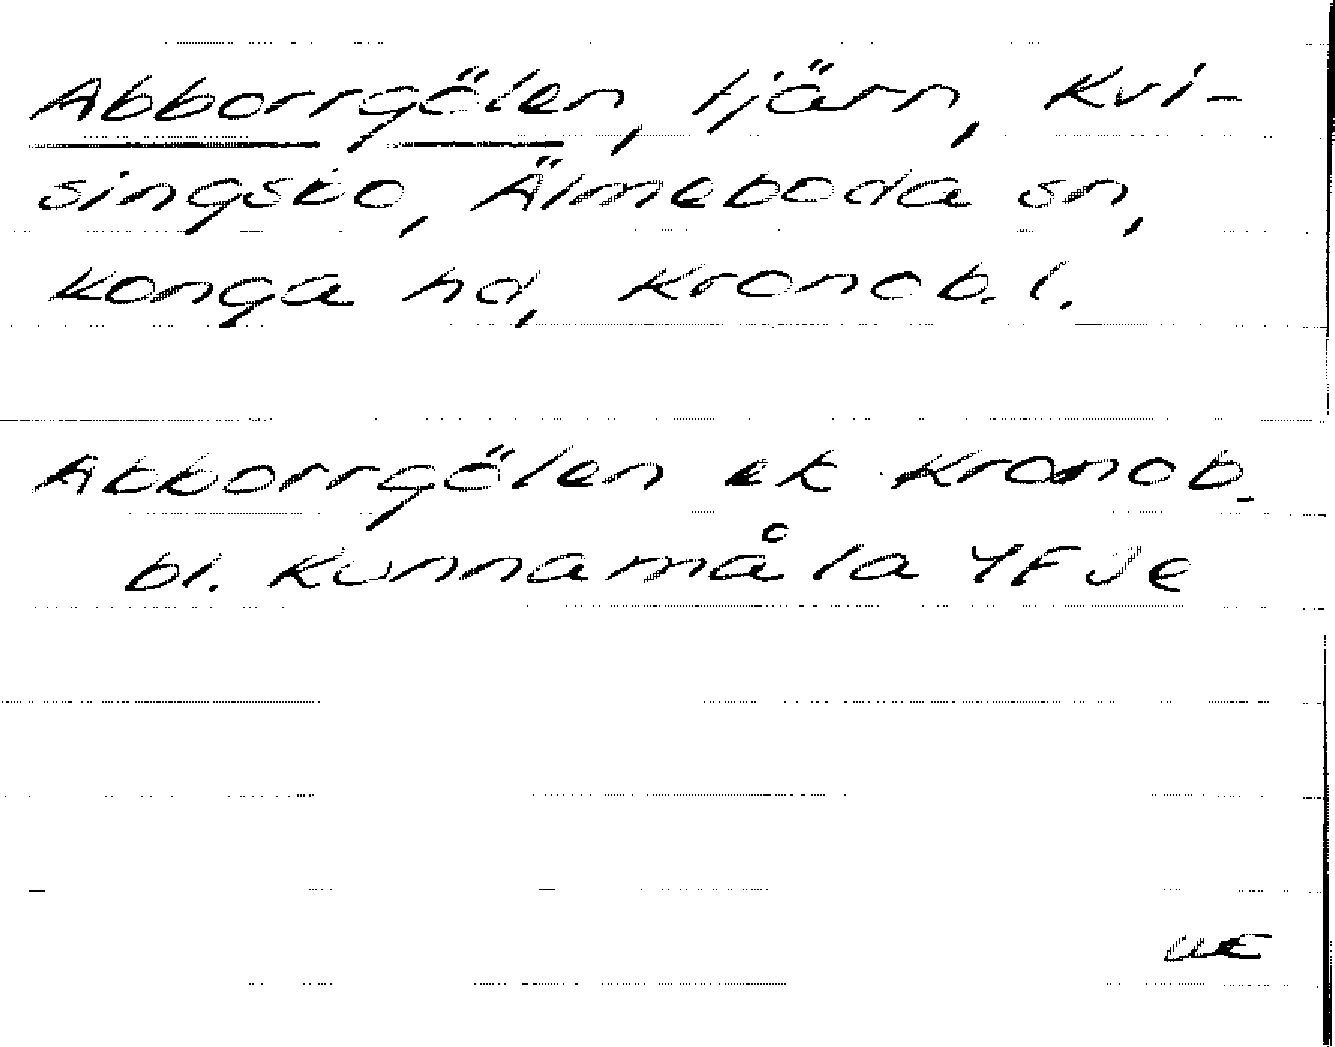 Abborrgölen, tjärn, Kvi-
singsbo, Älmeboda sn,
Konga hd, Kronob. l.
Abborrgölen ek Kronob.
bl. Kunnamåla 4F Je